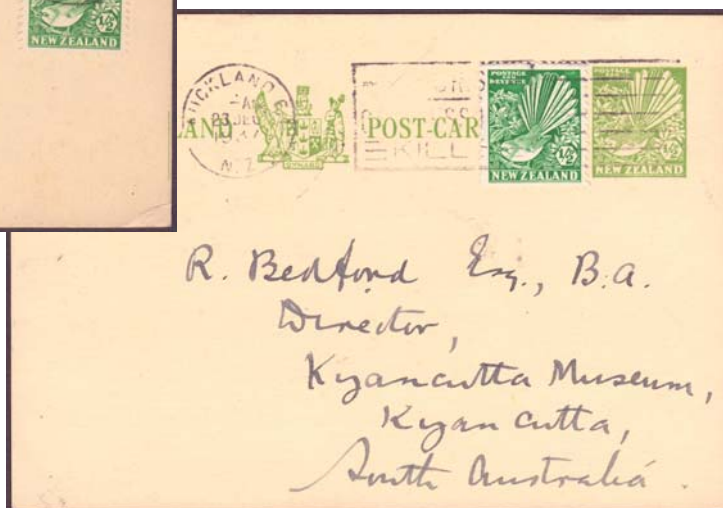 ½
NEW ZEALAND
AUCKLAND
23 DEC
N.Z.
LAND
POST-CAR
KILL
POSTAGE
AND
REVENUE
½
NEW ZEALAND
½
NEW ZEALAND
R. Bedford Esq., B.A.
Director,
Kyancutta Museum,
Kyancutta,
South Australia.